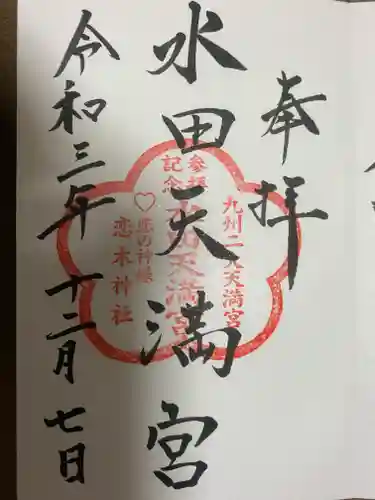 奉拝
水田天満宮
令和三年十二月七日
九州二大天満宮
参拝記念
水田天満宮
♡恋の神様
恋木神社